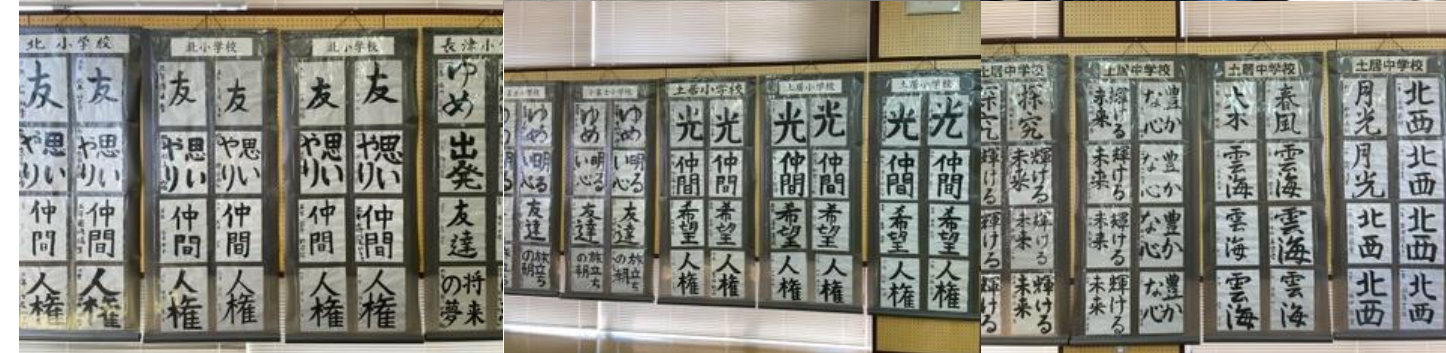 北小学校
友 友
思いやり 思いやり
仲間 仲間
人権 人権
北小学校
友 友
思いやり 思いやり
仲間 仲間
人権 人権
北小学校
友 友
思いやり 思いやり
仲間 仲間
人権 人権
長津小
ゆめ
出発
友達
将来の夢
ゆめ
友達
小富士小学校
ゆめ ゆめ
明るい心 明るい心
友達 友達
旅立ちの朝 旅立ちの朝
土居小学校
光 光
仲間 仲間
希望 希望
人権 人権
土居小学校
光 光
仲間 仲間
希望 希望
人権 人権
土居小学校
光 光
仲間 仲間
希望 希望
人権 人権
土居中学校
探究 探究
輝ける未来
輝ける未来
輝ける未来
土居中学校
輝ける未来 豊かな心
輝ける未来 豊かな心
輝ける未来 豊かな心
輝ける未来 豊かな心
土居中学校
大木 春風
雲海 雲海
雲海 雲海
雲海 雲海
土居中学校
月光 北西
月光 北西
北西 北西
北西 北西